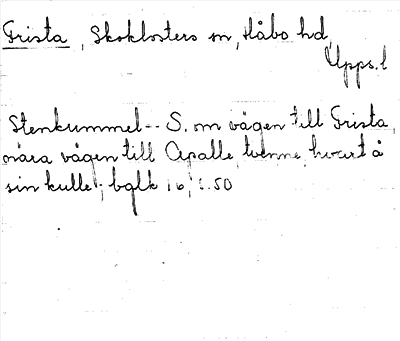 Frista, Skoklosters sn, Håbo hd,
Upps. l
Stenkummel -- S. om vägen till Frista,
nära vägen till Apalle, tvenne, hvart å
sin kulle; bglk 16, s. 50